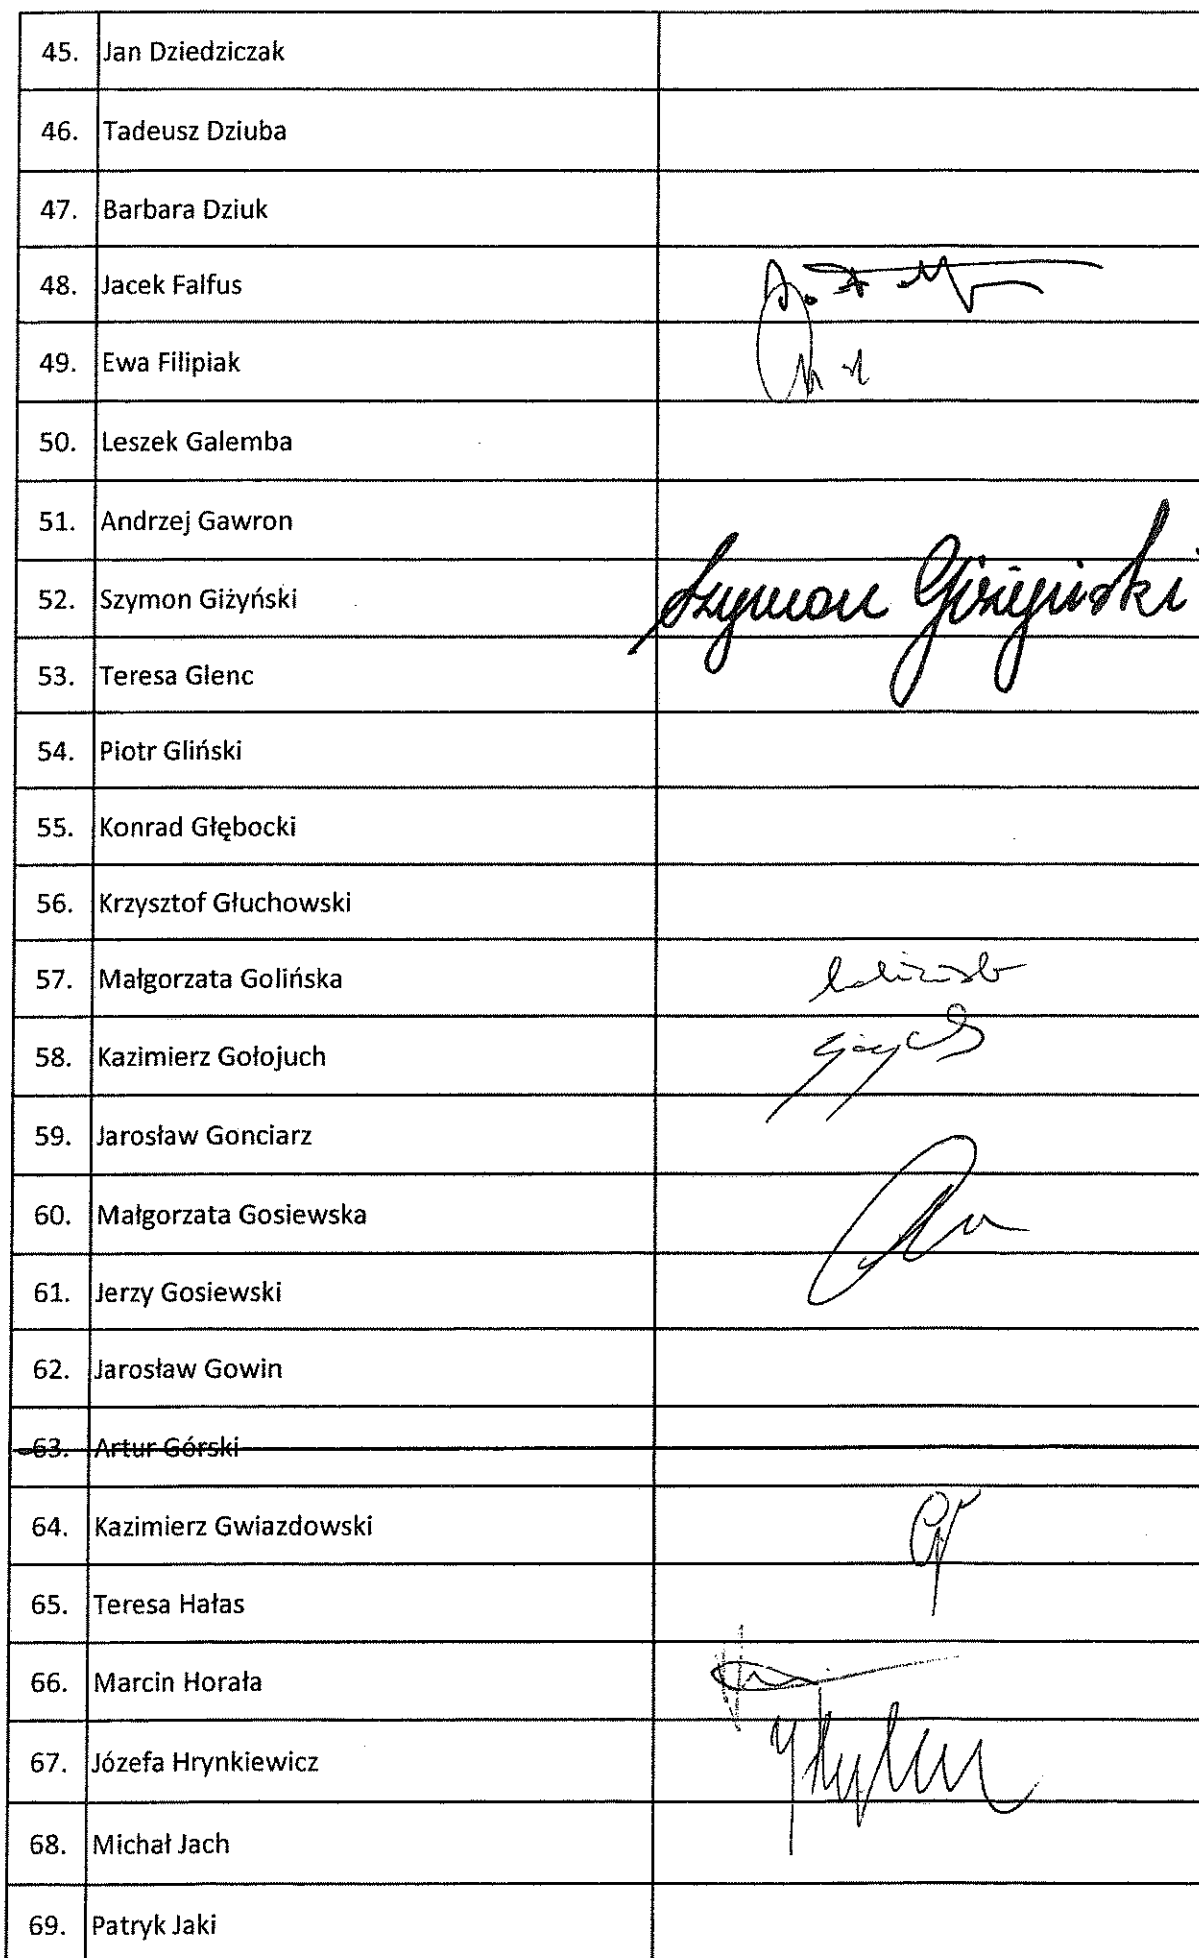 45. Jan Dziedziczak
46. Tadeusz Dziuba
47. Barbara Dziuk
48. Jacek Falfus
49. Ewa Filipiak
50. Leszek Galemba
51. Andrzej Gawron
52. Szymon Giżyński Szymon Giżyński
53. Teresa Glenc
54. Piotr Gliński
55. Konrad Głębocki
56. Krzysztof Głuchowski
57. Małgorzata Golińska
58. Kazimierz Gołojuch
59. Jarosław Gonciarz
60. Małgorzata Gosiewska
61. Jerzy Gosiewski
62. Jarosław Gowin
63. Artur Górski
64. Kazimierz Gwiazdowski
65. Teresa Hałas
66. Marcin Horała
67. Józefa Hrynkiewicz
68. Michał Jach
69. Patryk Jaki